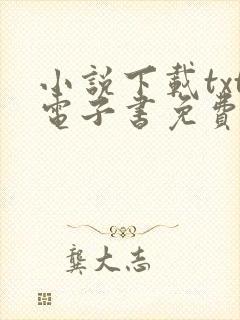 小說下載txt
電子書免費
龔大志